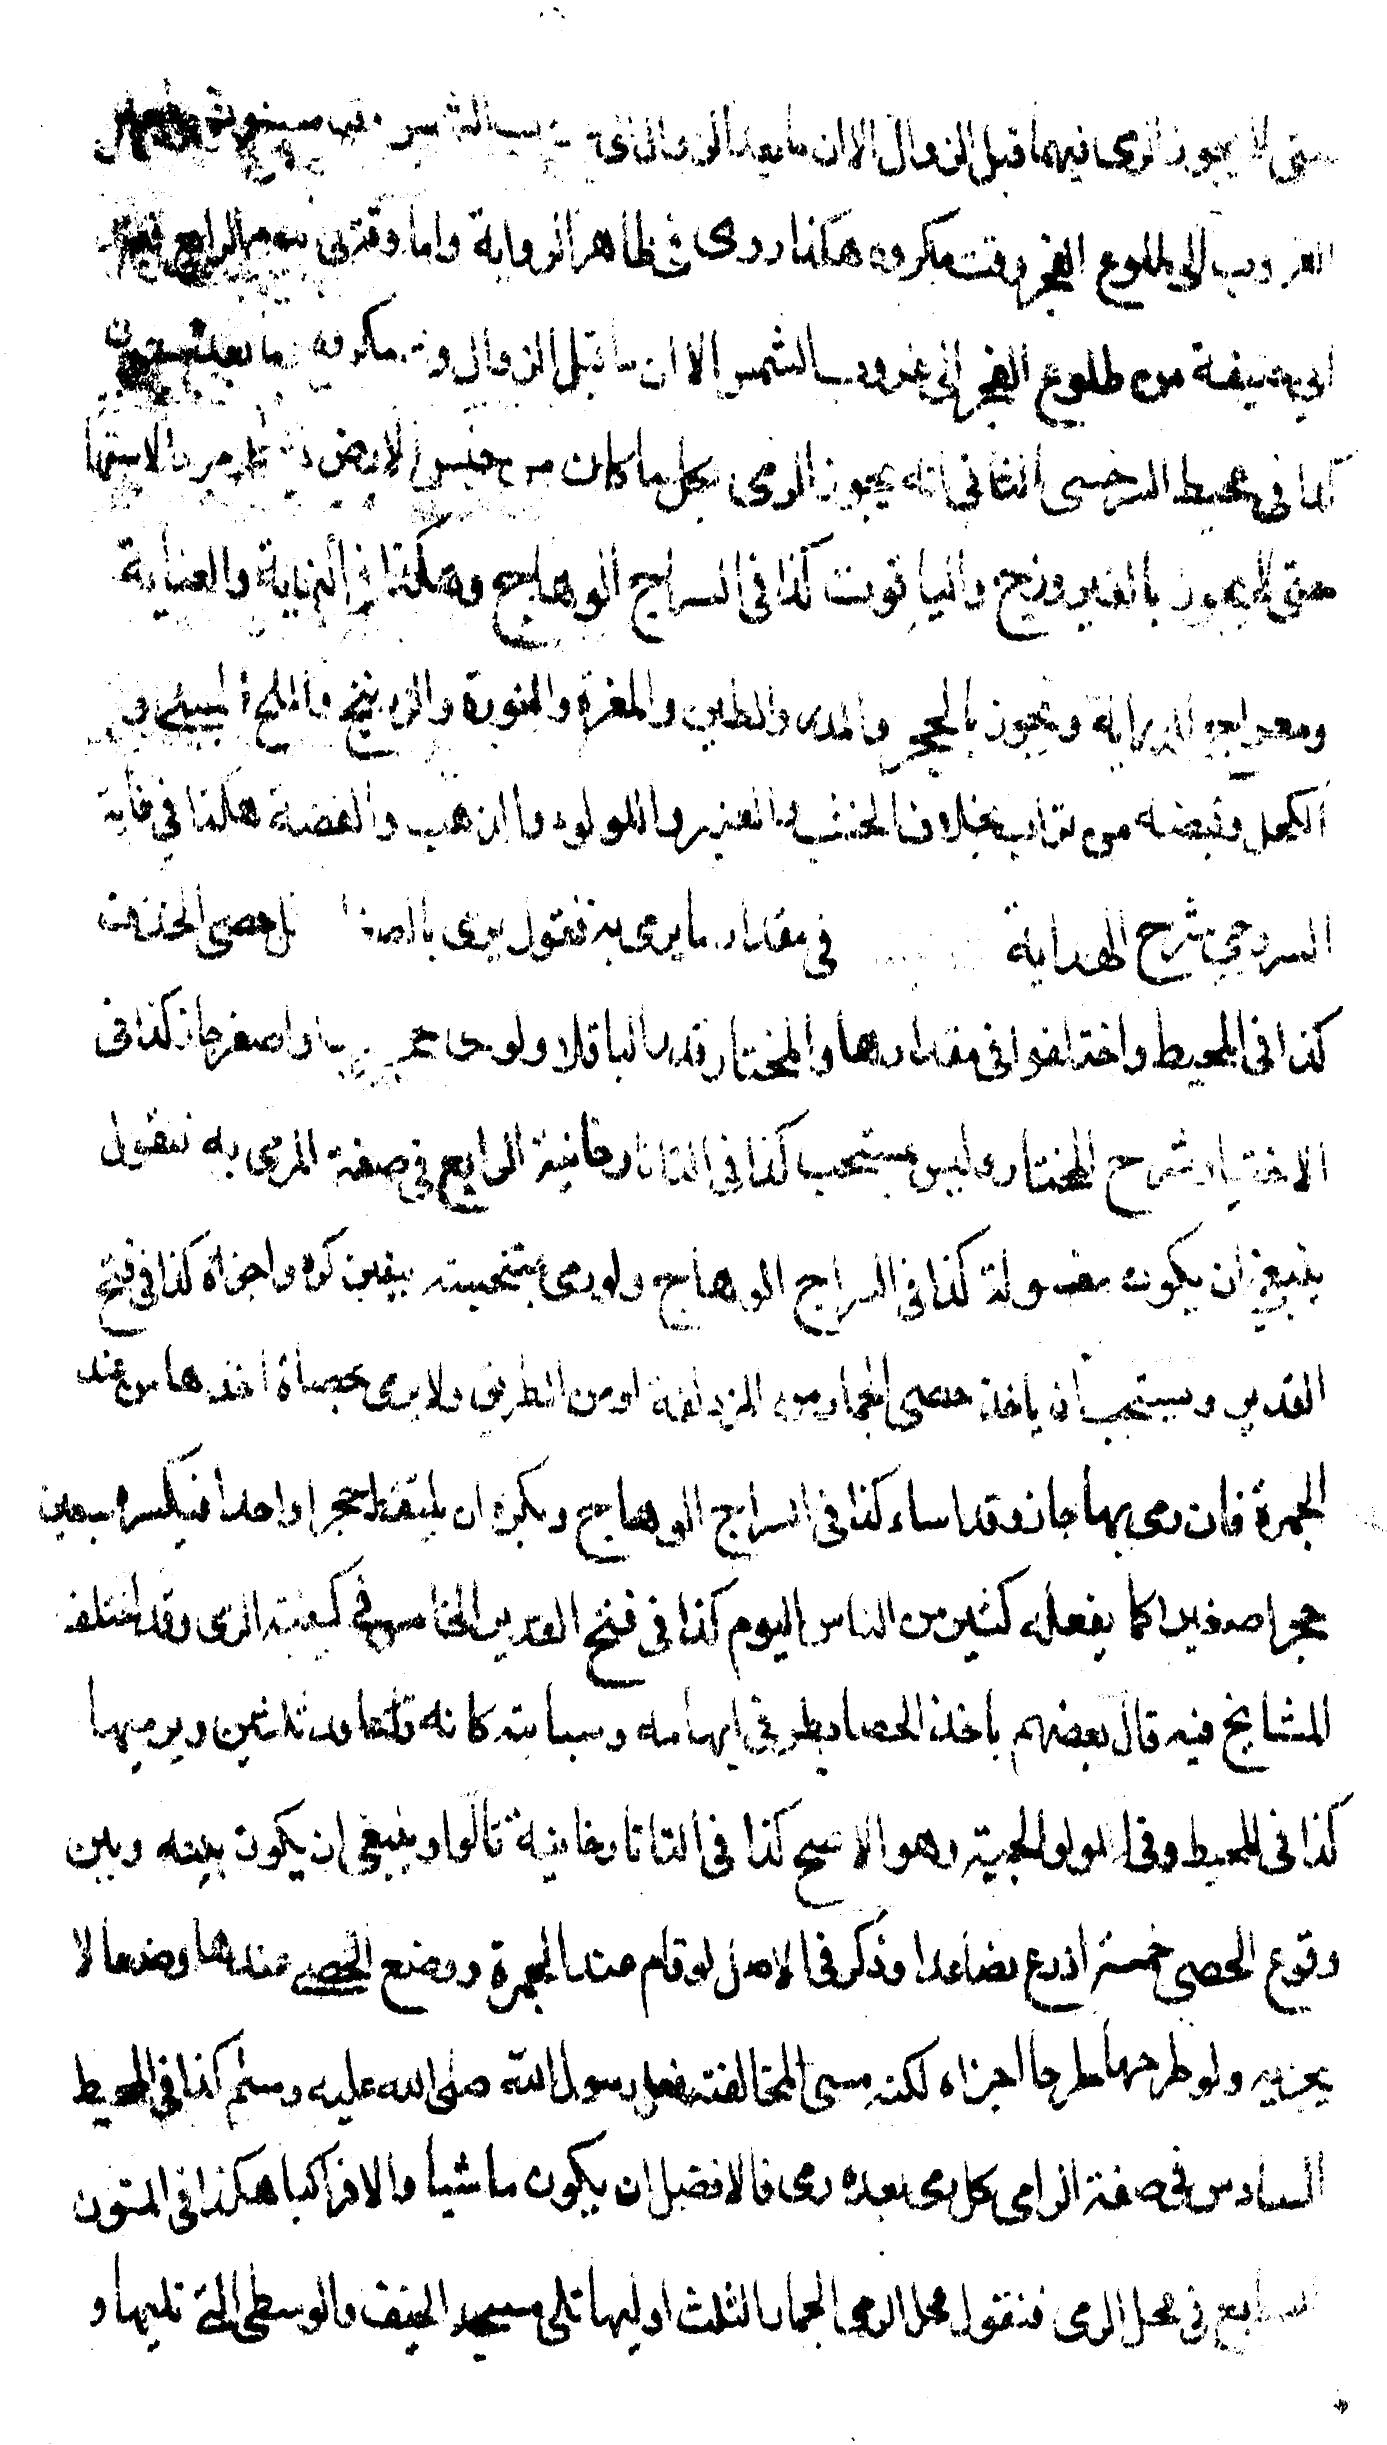 حتى لا يجوز الرمى فيهما قبل الزوال الا ان ما بعد الزوال الى غروب الشمس وقت مسنون
الغروب الى طلوع الفجر وقت مكروه هكذا روى فى ظاهر الرواية واما وقته فى اليوم الرابع فعند
ابى حنيفة من طلوع الفجر الى غروب الشمس الا ان ما قبل الزوال وقت مكروه وما بعده مسنون
كذا فى محيط السرخسى الثانى انه يجوز الرمى بكل ما كان من جنس الارض بشرط الاستها
حتى لا يجوز بالفيروزج والياقوت كذا فى السراج الوهاج وهكذا فى النهاية والعناية
ومعراج الدراية ويجوز بالحجر والمدر والطين والمغرة والنورة والزرنيخ والملح الجبلى و
الكحل وقبضة من تراب بخلاف الخشب والعنبر واللولوء والذهب والفضة هكذا فى غاية
السروجى شرح الهداية فى مقدار ما يرمى به فنقول يرمى بالصغار مثل حصى الخذف
كذا فى المحيط واختلفوا فى مقدارها والمختار قدر الباقلا ولو رمى حجر او اصغر جاز كذا فى
الاختيار شرح المختار وليس بمستحب كذا فى التاتارخانية الرابع فى صفة المرمى به فنقول
ينبغى ان يكون مغسولة كذا فى السراج الوهاج ولو رمى بمتنجسة بيقين كره واجزاه كذا فى فتح
القدير ويستحب ان ياخذ حصى الجمار من المزدلفة او من الطريق ولا يرمى بحصاة اخذها من عند
الجمرة فان رمى بها جاز وقد اساء كذا فى السراج الوهاج ويكره ان يلتقط حجرا واحدا فيكسره سبعين
حجرا صغيرا كما يفعله كثير من الناس اليوم كذا فى فتح القدير الخامس فى كيفية الرمى وقد اختلف
المشايخ فيه قال بعضهم ياخذ الحصا بطرفى ابهامه وسبابته كانه عاقد ثلاثين ويرميها
كذا فى المحيط وفى الولوالجية وهو الاصح كذا فى التاتارخانية قالوا وينبغى ان يكون بينه وبين
وقوع الحصى خمسة اذرع فصاعدا وذكر فى الاصل لو قام عند الجمرة ووضع الحصى عندها وضعا لا
يجزيه ولو طرحها طرحا اجزاه لكنه مسى لمخالفته فعل رسول الله صلى الله عليه وسلم كذا فى المحيط
السادس فى صفة الرامى كل رمى بعده رمى فالافضل ان يكون ماشيا والا فراكبا هكذا فى المتون
السابع فى محل الرمى فنقول محل الرمى الجمار الثلث اوليها تلى مسجد الخيف والوسطى التى تليها و